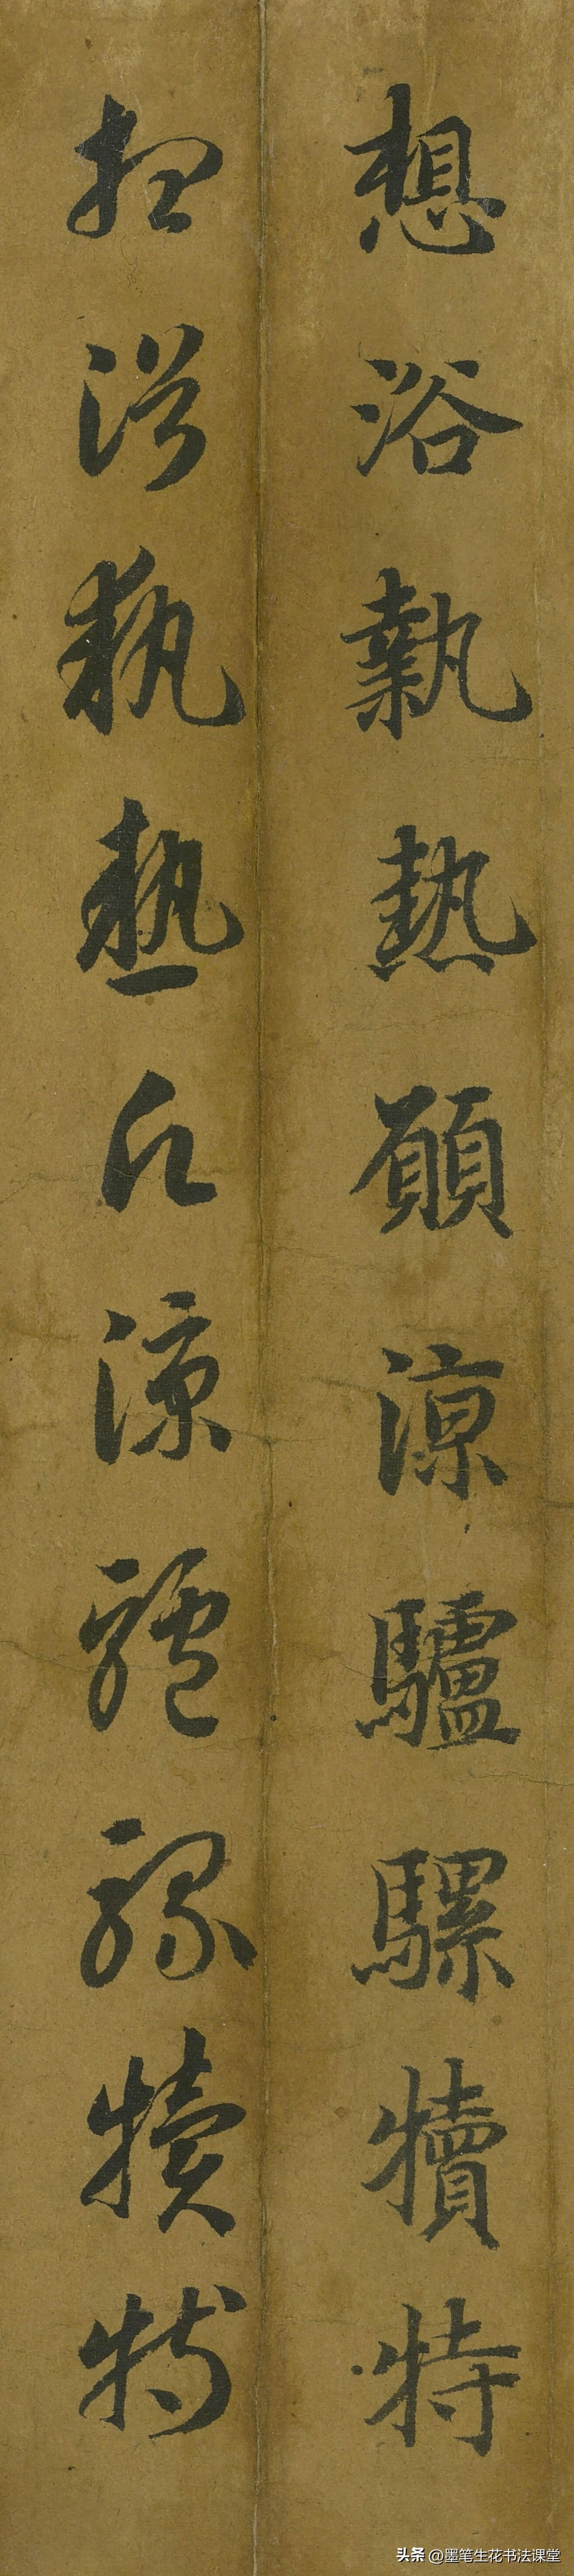 想浴執熱願涼驢騾犢特
想浴執熱願涼驢騾犢特
头条 @墨笔生花书法课堂